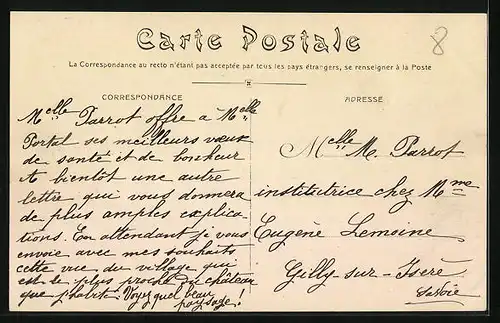 Carte Postale
8
La Correspondance au recto n'étant pas acceptée par tous les pays étrangers, se renseigner à la Poste
CORRESPONDANCE
Melle Parrot offre a Melle
Portal ses meilleurs vœux
de santé et de bonheur
A bientôt une autre
lettre qui vous donnera
de plus amples explica
tions. En attendant je vous
envoie avec mes souhaits
cette vue du village qui
est le plus proche du château
que j'habite. Voyez quel beau
paysage!
ADRESSE
Melle M. Parrot
institutrice chez Mme
Eugène Lemoine
Gilly-sur-Isère
Savoie